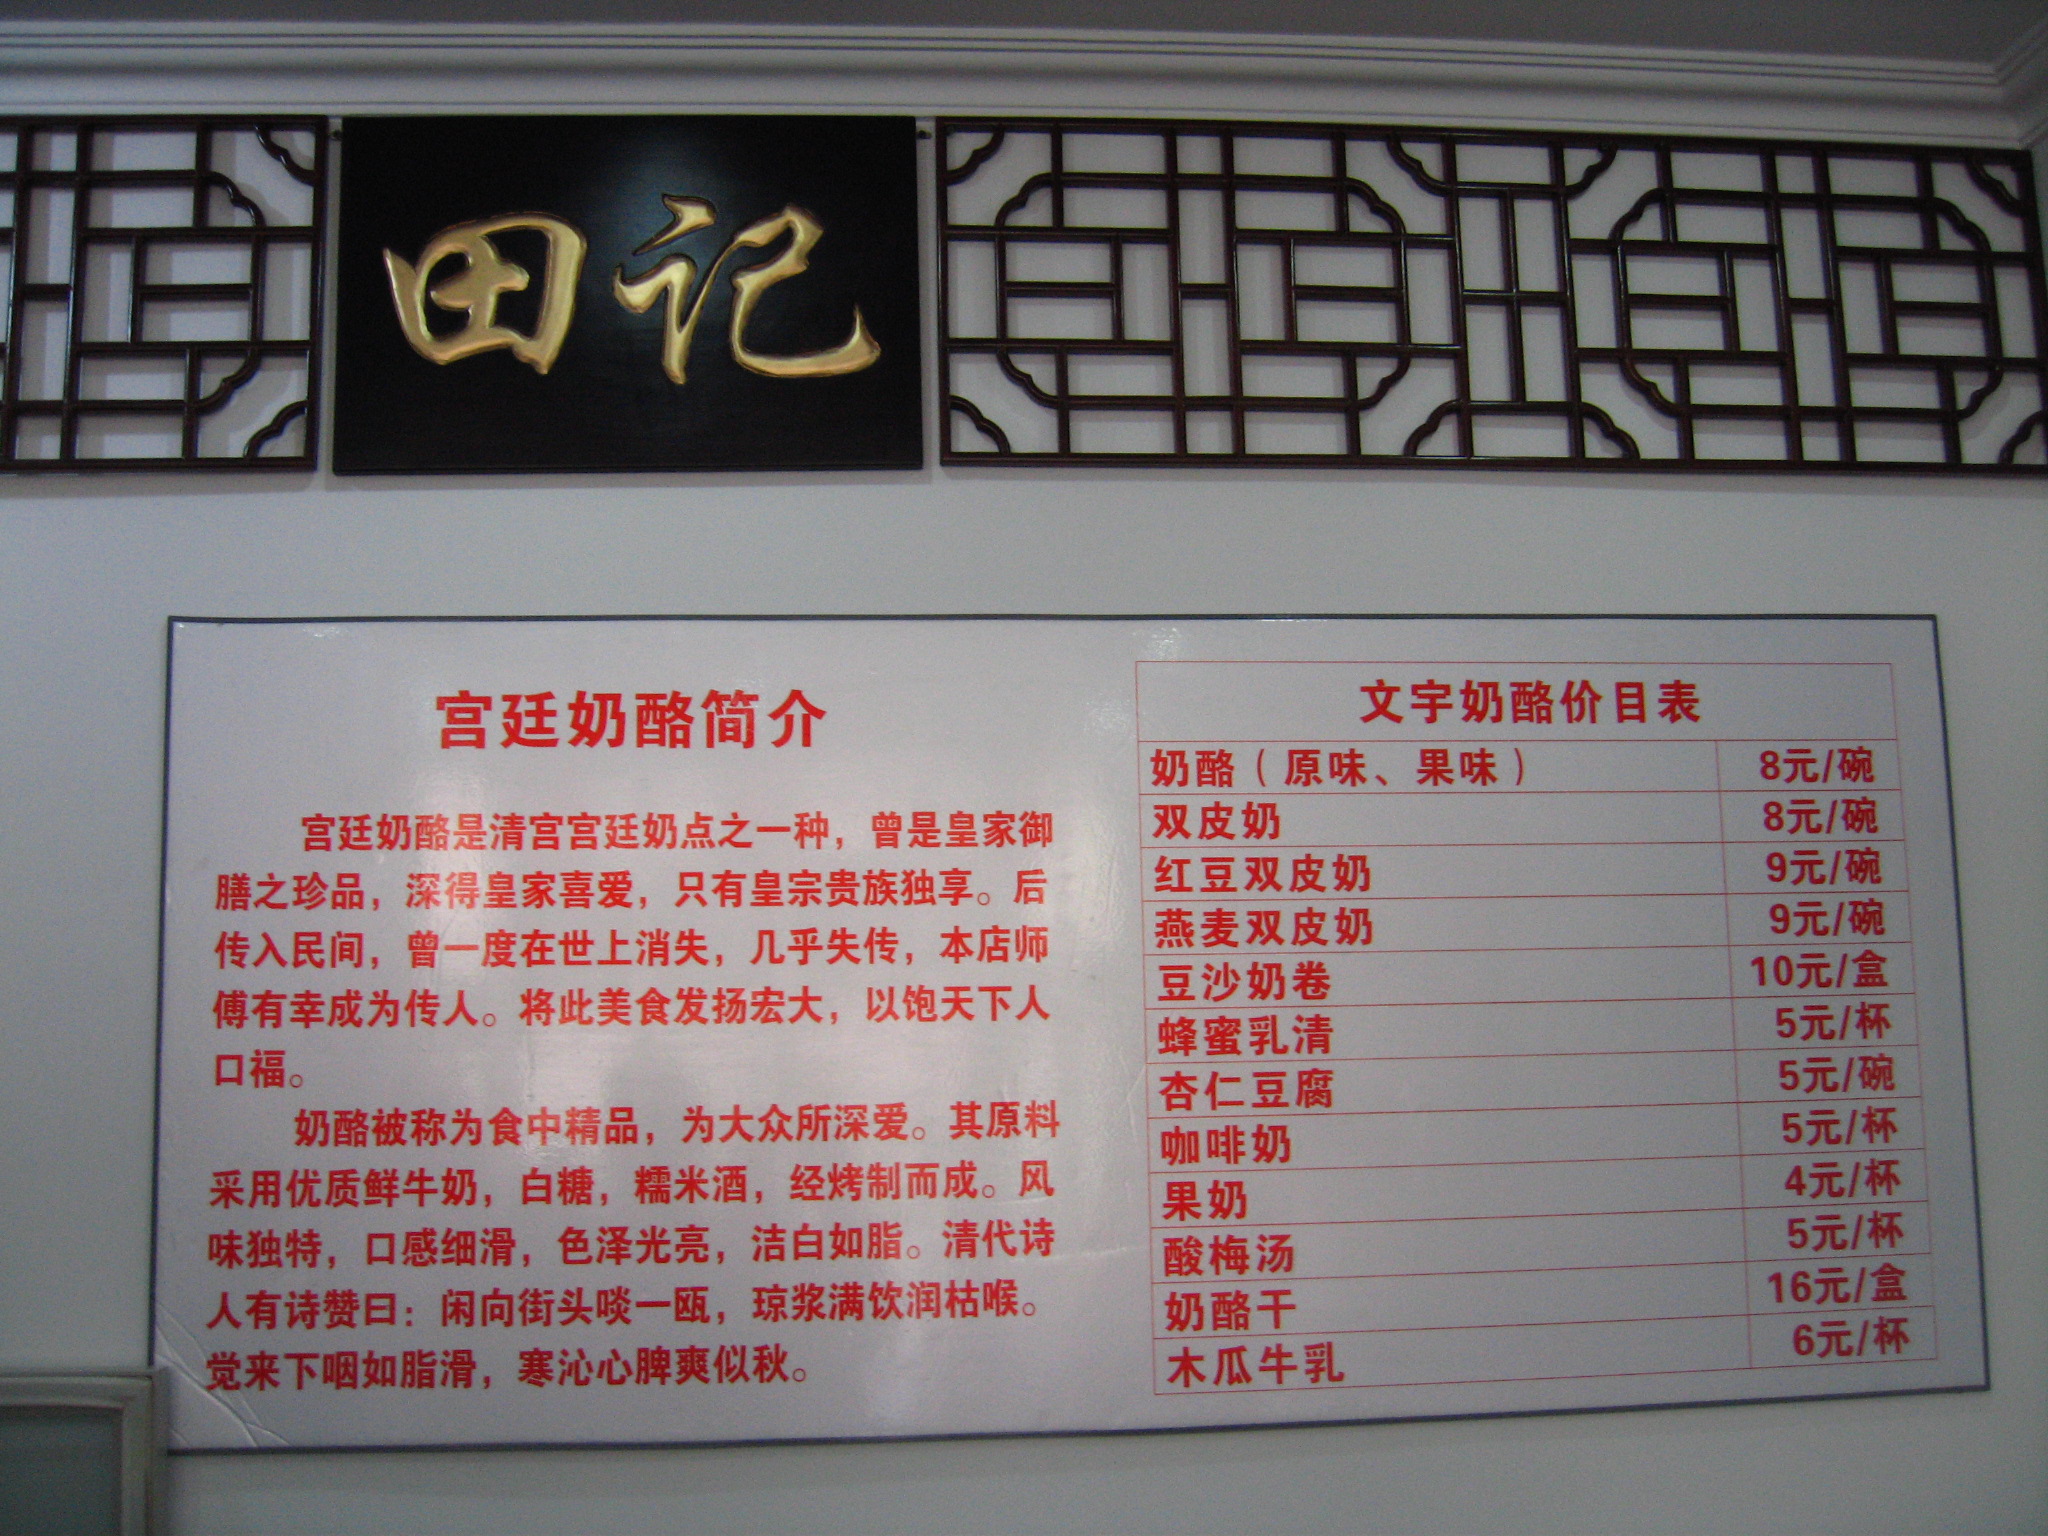 田记
宫廷奶酪简介
宫廷奶酪是清宫宫廷奶点之一种，曾是皇家御
膳之珍品，深得皇家喜爱，只有皇宗贵族独享。后
传入民间，曾一度在世上消失，几乎失传，本店师
傅有幸成为传人。将此美食发扬宏大，以饱天下人
口福。
奶酪被称为食中精品，为大众所深爱。其原料
采用优质鲜牛奶，白糖，糯米酒，经烤制而成。风
味独特，口感细滑，色泽光亮，洁白如脂。清代诗
人有诗赞曰：闲向街头啖一瓯，琼浆满饮润枯喉。
觉来下咽如脂滑，寒沁心脾爽似秋。
文宇奶酪价目表
奶酪（原味、果味） 8元/碗
双皮奶 8元/碗
红豆双皮奶 9元/碗
燕麦双皮奶 9元/碗
豆沙奶卷 10元/盒
蜂蜜乳清 5元/杯
杏仁豆腐 5元/碗
咖啡奶 5元/杯
果奶 4元/杯
酸梅汤 5元/杯
奶酪干 16元/盒
木瓜牛乳 6元/杯